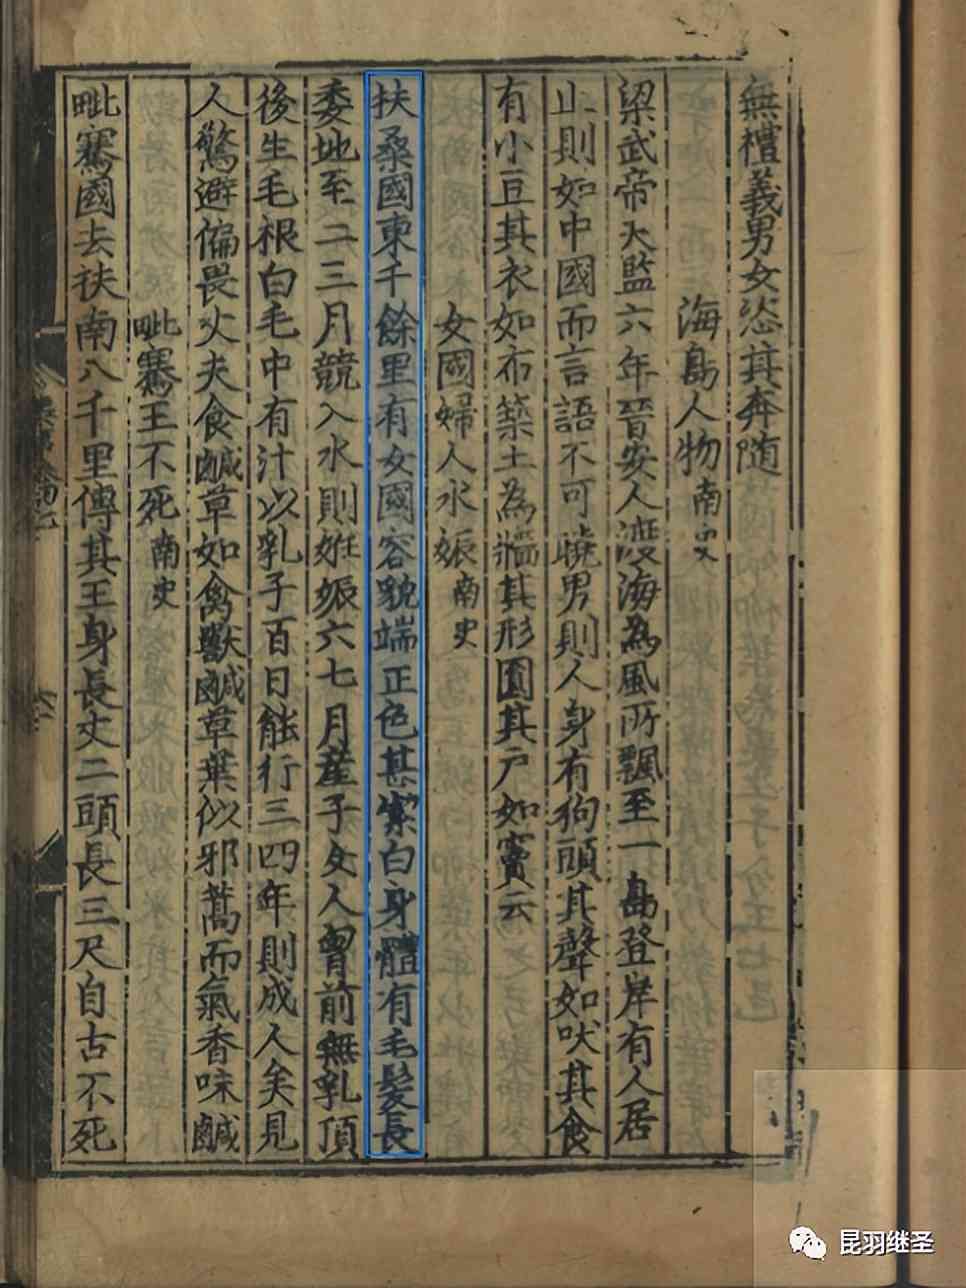 無禮義男女恣其奔隨
海島人物南史
梁武帝天監六年晉安人渡海為風所飄至一島登岸有人居
止則如中國而言語不可曉男則人身有狗頭其聲如吠其食
有小豆其衣如布築土為牆其形圓其戶如竇云
女國婦人水娠南史
扶桑國東千餘里有女國容貌端正色甚潔白身體有毛髮長
委地至二三月競入水則姙娠六七月產子女人胷前無乳項
後生毛根白毛中有汁以乳子百日能行三四年則成人矣見
人驚避偏畏丈夫食鹹草如禽獸鹹草葉似邪蒿而氣香味鹹
毗騫王不死南史
毗騫國去扶南八千里傳其王身長丈二頭長三尺自古不死
昆羽继圣